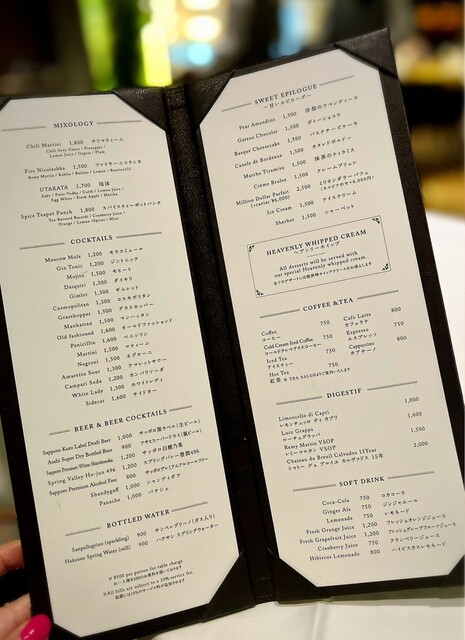 MIXOLOGY
Chili Martini 1,800 チリマティーニ
Chili Grey Goose / Pineapple /
Lemon Juice / Orgeat / Plum
Fire Nicolashka 1,500 ファイヤーニコラシカ
UTAKATA 1,700 泡沫
Egg White / Fresh Apple / Matcha
Spice Teapot Punch 1,800 スパイスティーポットパンチ
COCKTAILS
Moscow Mule 1,200 モスコミュール
Gin Tonic 1,200 ジントニック
Mojito 1,500 モヒート
Daiquiri 1,200 ダイキリ
Gimlet 1,300 ギムレット
Cosmopolitan 1,300 コスモポリタン
Grasshopper 1,500 グラスホッパー
Manhattan 1,500 マンハッタン
Old fashioned 1,600 オールドファッションド
Penicillin 1,600 ペニシリン
Martini 1,500 マティーニ
Negroni 1,500 ネグローニ
Amaretto Sour 1,300 アマレットサワー
Campari Soda 1,200 カンパリソーダ
White Lady 1,300 ホワイトレディ
Sidecar 1,600 サイドカー
BEER & BEER COCKTAILS
Sapporo Kuro Label Draft Beer 1,000 サッポロ黒ラベル(生ビール)
Asahi Super Dry Bottled Beer 900 アサヒスーパードライ(瓶ビール)
Sapporo Premium White Shirohonoka 1,200 サッポロ白穂乃香
Spring Valley Ho-jun 496 1,200 スプリングバレー豊潤496
Sapporo Premium Alcohol Free 800 サッポロプレミアムアルコールフリー
Shandygaff 1,000 シャンディガフ
Panache 1,000 パナシェ
BOTTLED WATER
Sanpellegrino (sparkling) 900 サンペレグリーノ(ガス入り)
Hakusan Spring Water (still) 900 ハクサン スプリングウォーター
※¥500 per person for table charge.
※All bills are subject to a 10% service fee.
SWEET EPILOGUE
〜甘いエピローグ〜
Pear Amandine 1,500 洋梨のアマンディーヌ
Gateau Chocolat 1,200 ガトーショコラ
Basque Cheesecake 1,200 バスクチーズケーキ
Canelé de Bordeaux 1,500 カヌレドボルドー
Matcha Tiramisu 1,500 抹茶のティラミス
Crème Brulée 1,500 クレームブリュレ
Million Dollar Parfait 2,500 ミリオンダラーパフェ
(+caviar ¥6,000) (キャビアのせ+6,000円)
Ice Cream 1,000 アイスクリーム
Sherbet 1,500 シャーベット
HEAVENLY WHIPPED CREAM
ヘブンリーホイップ
All desserts will be served with
our special Heavenly whipped cream.
全てのデザートには特製特別ホイップクリームをお添えします
COFFEE &TEA
Coffee 750 Cafe Latte 800
コーヒー カフェラテ
Cold Cream Iced Coffee 750 Espresso 750
コールドクレマアイスコーヒー エスプレッソ
Iced Tea 750 Cappuccino 800
アイスティー カプチーノ
Hot Tea
紅茶 ※TEA SALONよりご案内いたします
DIGESTIF
Limoncello di Capri 1,000
レモンチェッロ ディ カプリ
Luce Grappa 1,500
ルーチェグラッパ
Remy Martin VSOP 1,600
レミーマルタン VSOP
Chateau du Breuil Calvados 15Year 2,000
シャトー デュ ブルイユ カルヴァドス 15年
SOFT DRINK
Coca-Cola 750 コカコーラ
Ginger Ale 750 ジンジャエール
Lemonade 750 レモネード
Fresh Orange Juice 1,200 フレッシュオレンジジュース
Fresh Grapefruit Juice 1,200 フレッシュグレープフルーツジュース
Cranberry Juice 750 クランベリージュース
Hibiscus Lemonade 800 ハイビスカスレモネード